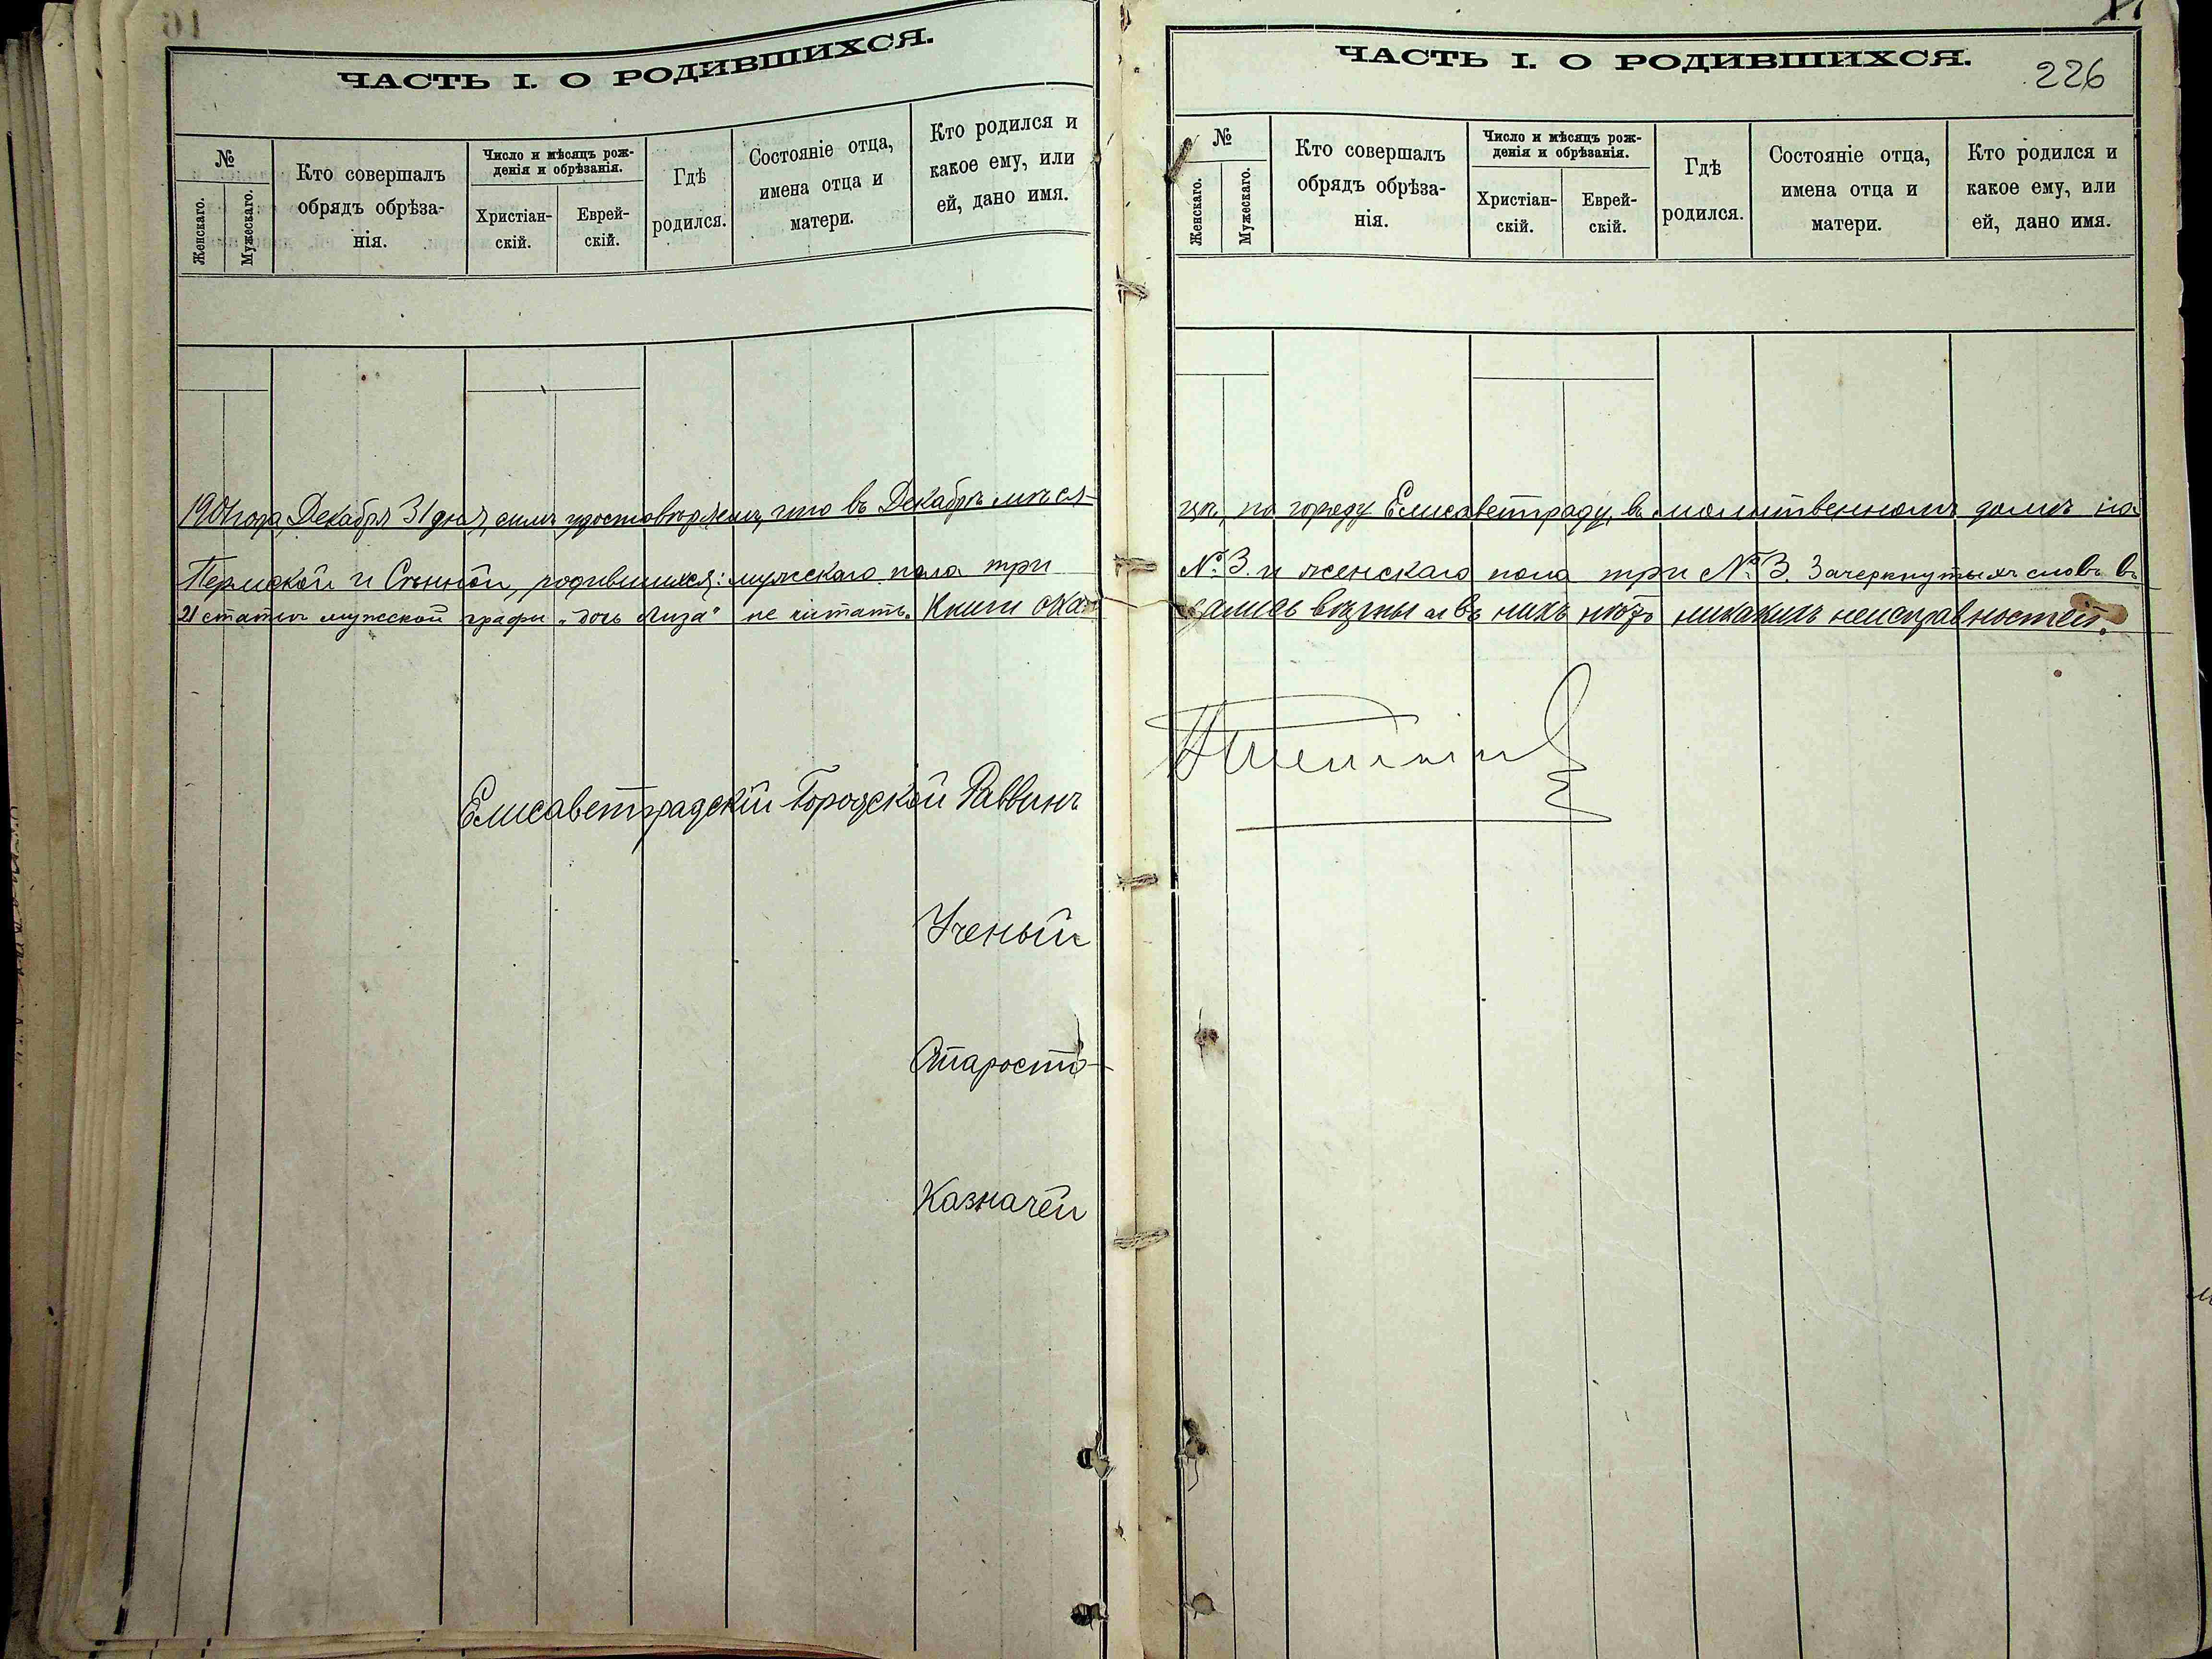 ЧАСТЬ I. О РОДИВШИХСЯ.
№
Женскаго.
Мужескаго.
Кто совершалъ
обрядъ обрѣза-
нія.
Число и мѣсяцъ рож-
денія и обрѣзанія.
Христіан-
скій.
Еврей-
скій.
Гдѣ
родился.
Состояніе отца,
имена отца и
матери.
Кто родился и
какое ему, или
ей, дано имя.
года, Декабря 31 дня, симъ удостовѣряемъ, что въ Декабрѣ мѣся-
Пермской и Сѣнной, родившихся: мужескаго пола три
21 статьи мужской графы „дочь Лиза" не читать. Книги ока-
Елисаветградскій Городской Раввинъ
Ученый
Староста
Казначей
ЧАСТЬ I. О РОДИВШИХСЯ.
226
№
Женскаго.
Мужескаго.
Кто совершалъ
обрядъ обрѣза-
нія.
Число и мѣсяцъ рож-
денія и обрѣзанія.
Христіан-
скій.
Еврей-
скій.
Гдѣ
родился.
Состояніе отца,
имена отца и
матери.
Кто родился и
какое ему, или
ей, дано имя.
цѣ, по городу Елисаветграду, въ молитвенномъ домѣ на
№ 3 и женскаго пола три № 3. Зачеркнутыхъ словъ въ
зались вѣрны и въ нихъ нѣтъ никакихъ неисправностей.